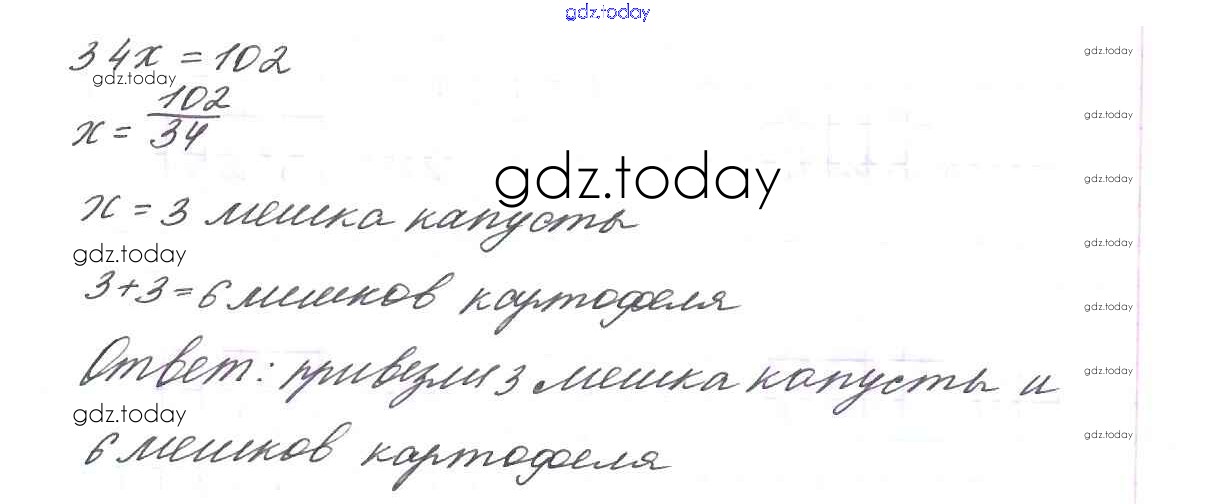 gdz.today
34x = 102
gdz.today
gdz.today
x = 102/34
gdz.today
gdz.today
gdz.today
x = 3 мешка капусты
gdz.today
gdz.today
3+3=6 мешков картофеля
gdz.today
Ответ: привезли 3 мешка капусты и
gdz.today
gdz.today
6 мешков картофеля
gdz.today